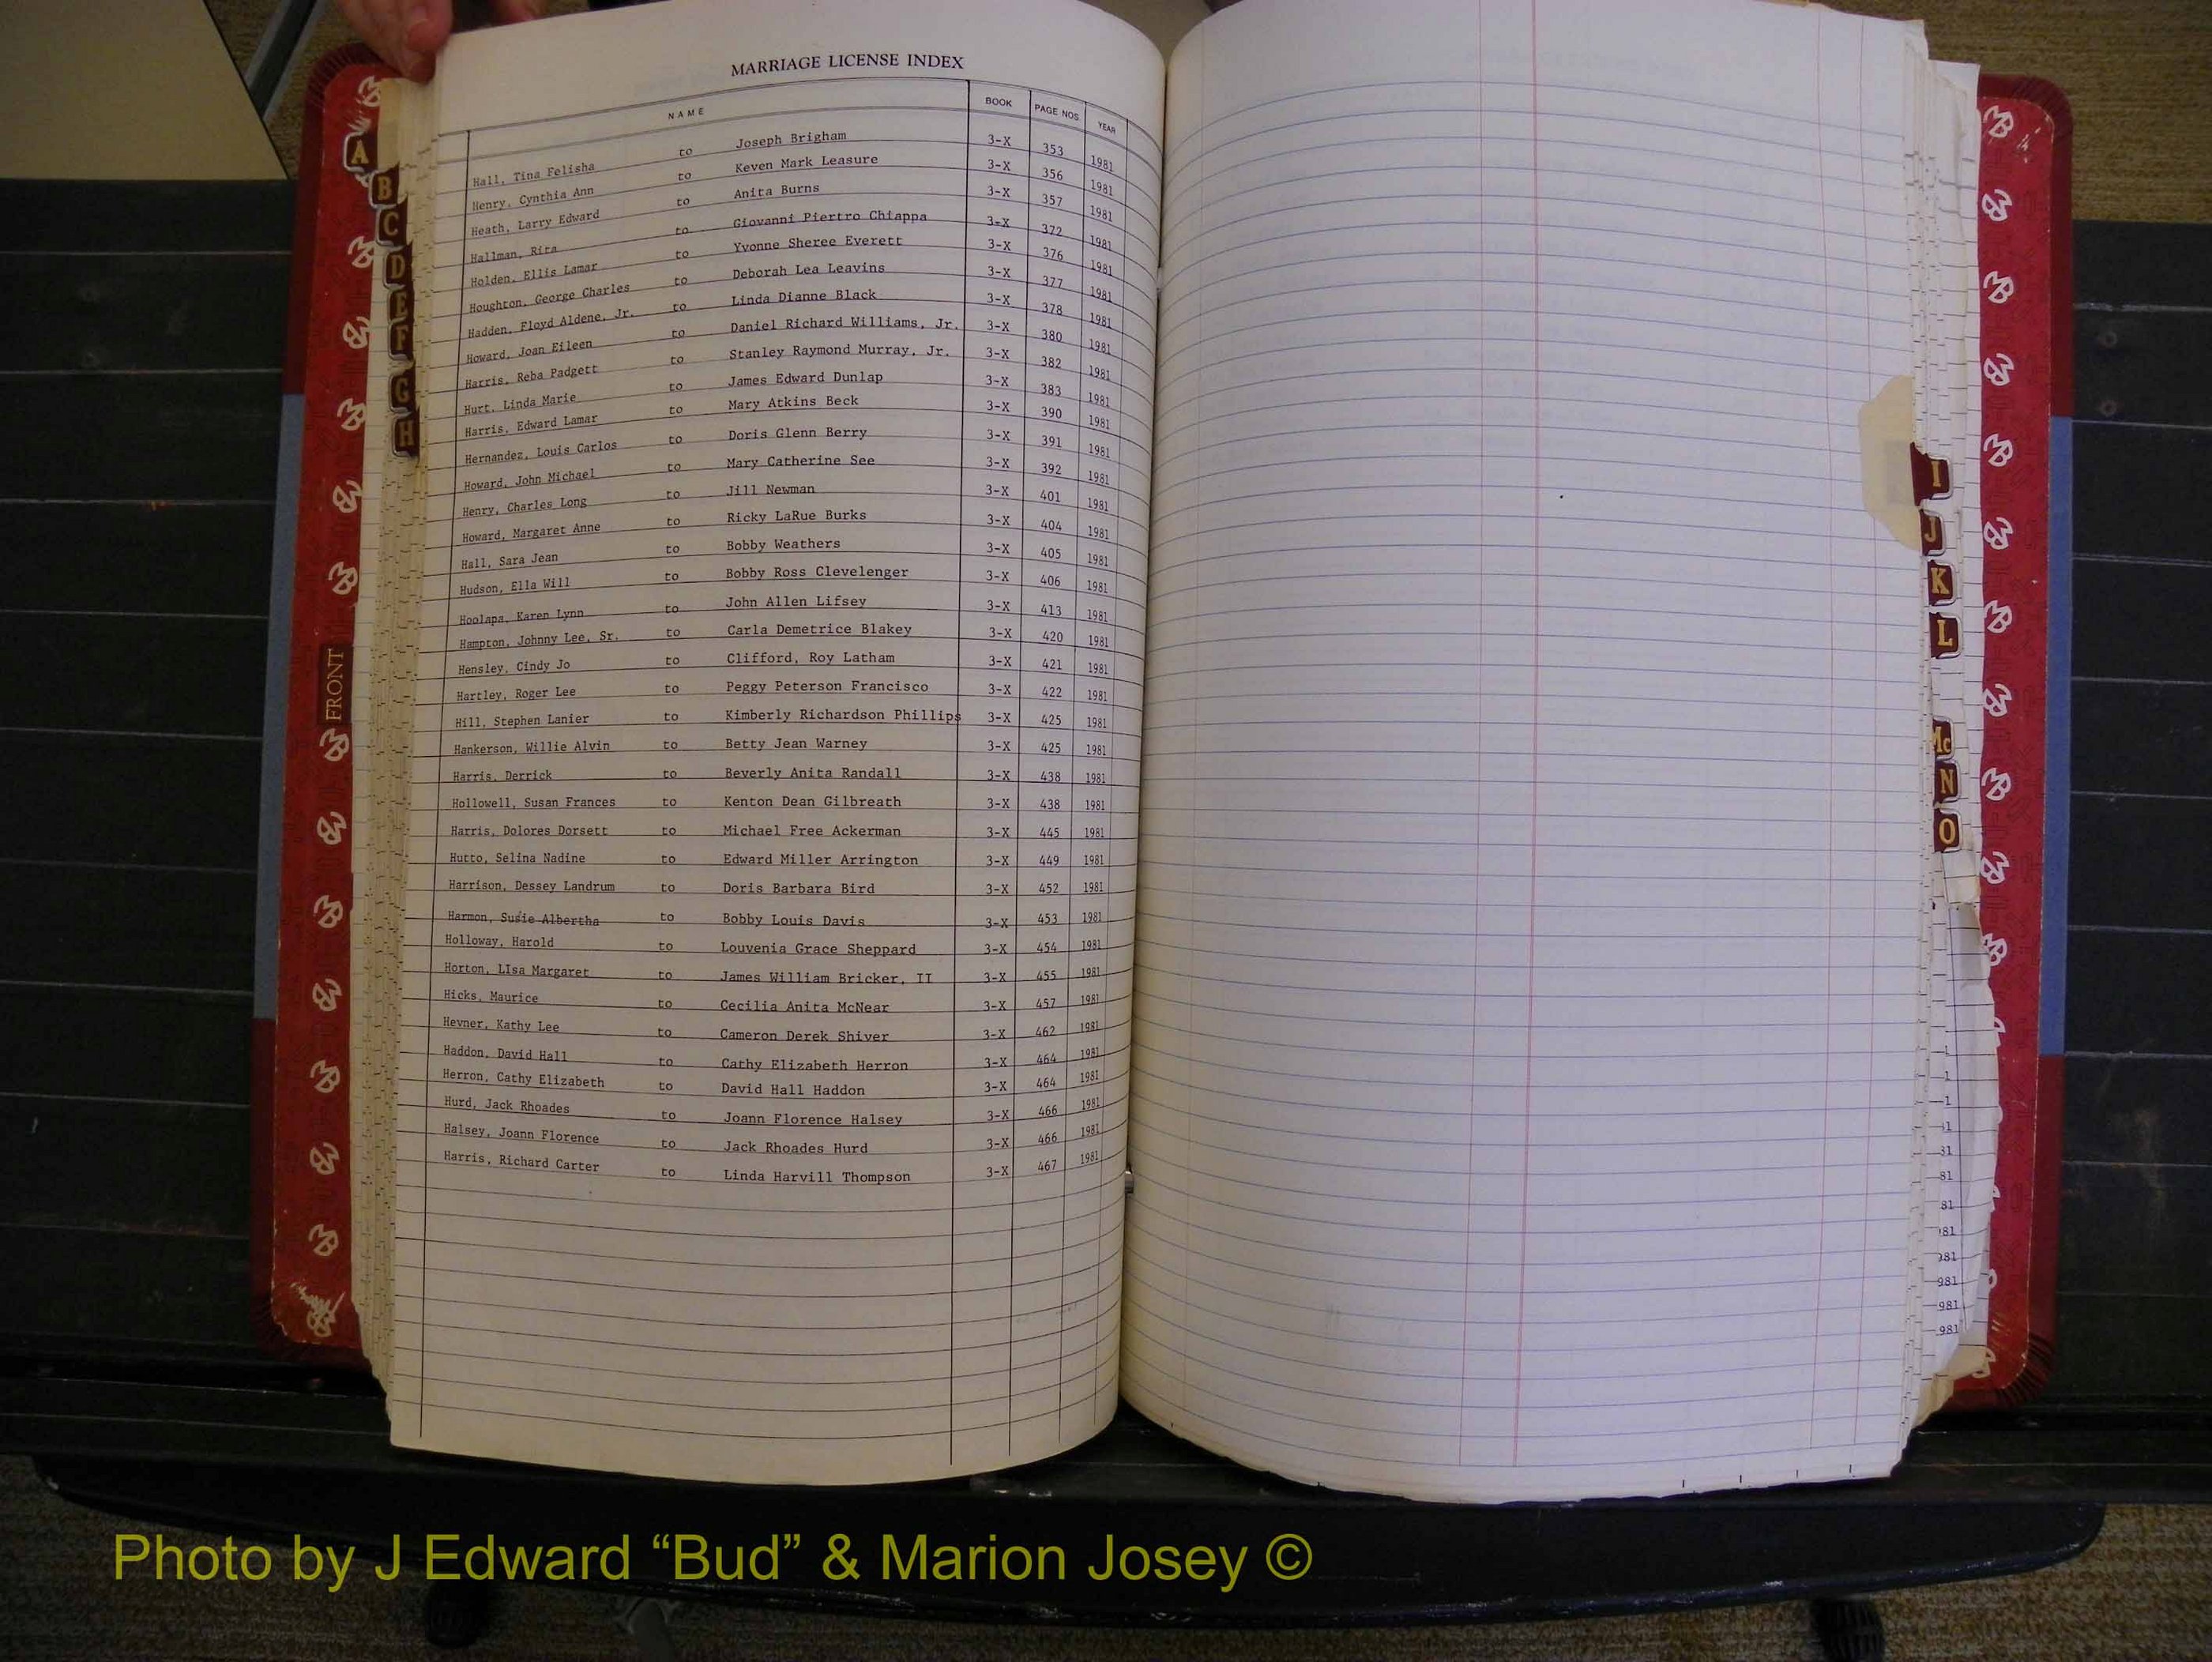 MARRIAGE LICENSE INDEX
NAME BOOK PAGE NOS. YEAR
Hall, Tina Felisha to Joseph Brigham 3-X 353 1981
Henry, Cynthia Ann to Keven Mark Leasure 3-X 356 1981
Heath, Larry Edward to Anita Burns 3-X 357 1981
Hallman, Rita to Giovanni Piertro Chiappa 3-X 372 1981
Holden, Ellis Lamar to Yvonne Sheree Everett 3-X 376 1981
Houghton, George Charles to Deborah Lea Leavins 3-X 377 1981
Hadden, Floyd Aldene, Jr. to Linda Dianne Black 3-X 378 1981
Howard, Joan Eileen to Daniel Richard Williams, Jr. 3-X 380 1981
Harris, Reba Padgett to Stanley Raymond Murray, Jr. 3-X 382 1981
Hurt, Linda Marie to James Edward Dunlap 3-X 383 1981
Harris, Edward Lamar to Mary Atkins Beck 3-X 390 1981
Hernandez, Louis Carlos to Doris Glenn Berry 3-X 391 1981
Howard, John Michael to Mary Catherine See 3-X 392 1981
Henry, Charles Long to Jill Newman 3-X 401 1981
Howard, Margaret Anne to Ricky LaRue Burks 3-X 404 1981
Hall, Sara Jean to Bobby Weathers 3-X 405 1981
Hudson, Ella Will to Bobby Ross Clevelenger 3-X 406 1981
Hoolapa, Karen Lynn to John Allen Lifsey 3-X 413 1981
Hampton, Johnny Lee, Sr. to Carla Demetrice Blakey 3-X 420 1981
Hensley, Cindy Jo to Clifford, Roy Latham 3-X 421 1981
Hartley, Roger Lee to Peggy Peterson Francisco 3-X 422 1981
Hill, Stephen Lanier to Kimberly Richardson Phillips 3-X 425 1981
Hankerson, Willie Alvin to Betty Jean Warney 3-X 425 1981
Harris, Derrick to Beverly Anita Randall 3-X 438 1981
Hollowell, Susan Frances to Kenton Dean Gilbreath 3-X 438 1981
Harris, Dolores Dorsett to Michael Free Ackerman 3-X 445 1981
Hutto, Selina Nadine to Edward Miller Arrington 3-X 449 1981
Harrison, Dessey Landrum to Doris Barbara Bird 3-X 452 1981
Harmon, Susie Albertha to Bobby Louis Davis 3-X 453 1981
Holloway, Harold to Louvenia Grace Sheppard 3-X 454 1981
Horton, LIsa Margaret to James William Bricker, II 3-X 455 1981
Hicks, Maurice to Cecilia Anita McNear 3-X 457 1981
Hevner, Kathy Lee to Cameron Derek Shiver 3-X 462 1981
Haddon, David Hall to Cathy Elizabeth Herron 3-X 464 1981
Herron, Cathy Elizabeth to David Hall Haddon 3-X 464 1981
Hurd, Jack Rhoades to Joann Florence Halsey 3-X 466 1981
Halsey, Joann Florence to Jack Rhoades Hurd 3-X 466 1981
Harris, Richard Carter to Linda Harvill Thompson 3-X 467 1981
A
B
C
D
E
F
G
H
FRONT
I
J
K
L
Mc
N
O
1
1
1
31
81
81
981
981
981
981
Photo by J Edward “Bud” & Marion Josey ©